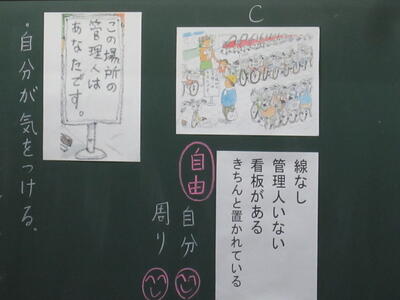 C
この場所の
管理人は
あなたです。
・自分が気をつける。
自由
自分
周り
線なし
管理人いない
看板がある
きちんと置かれている